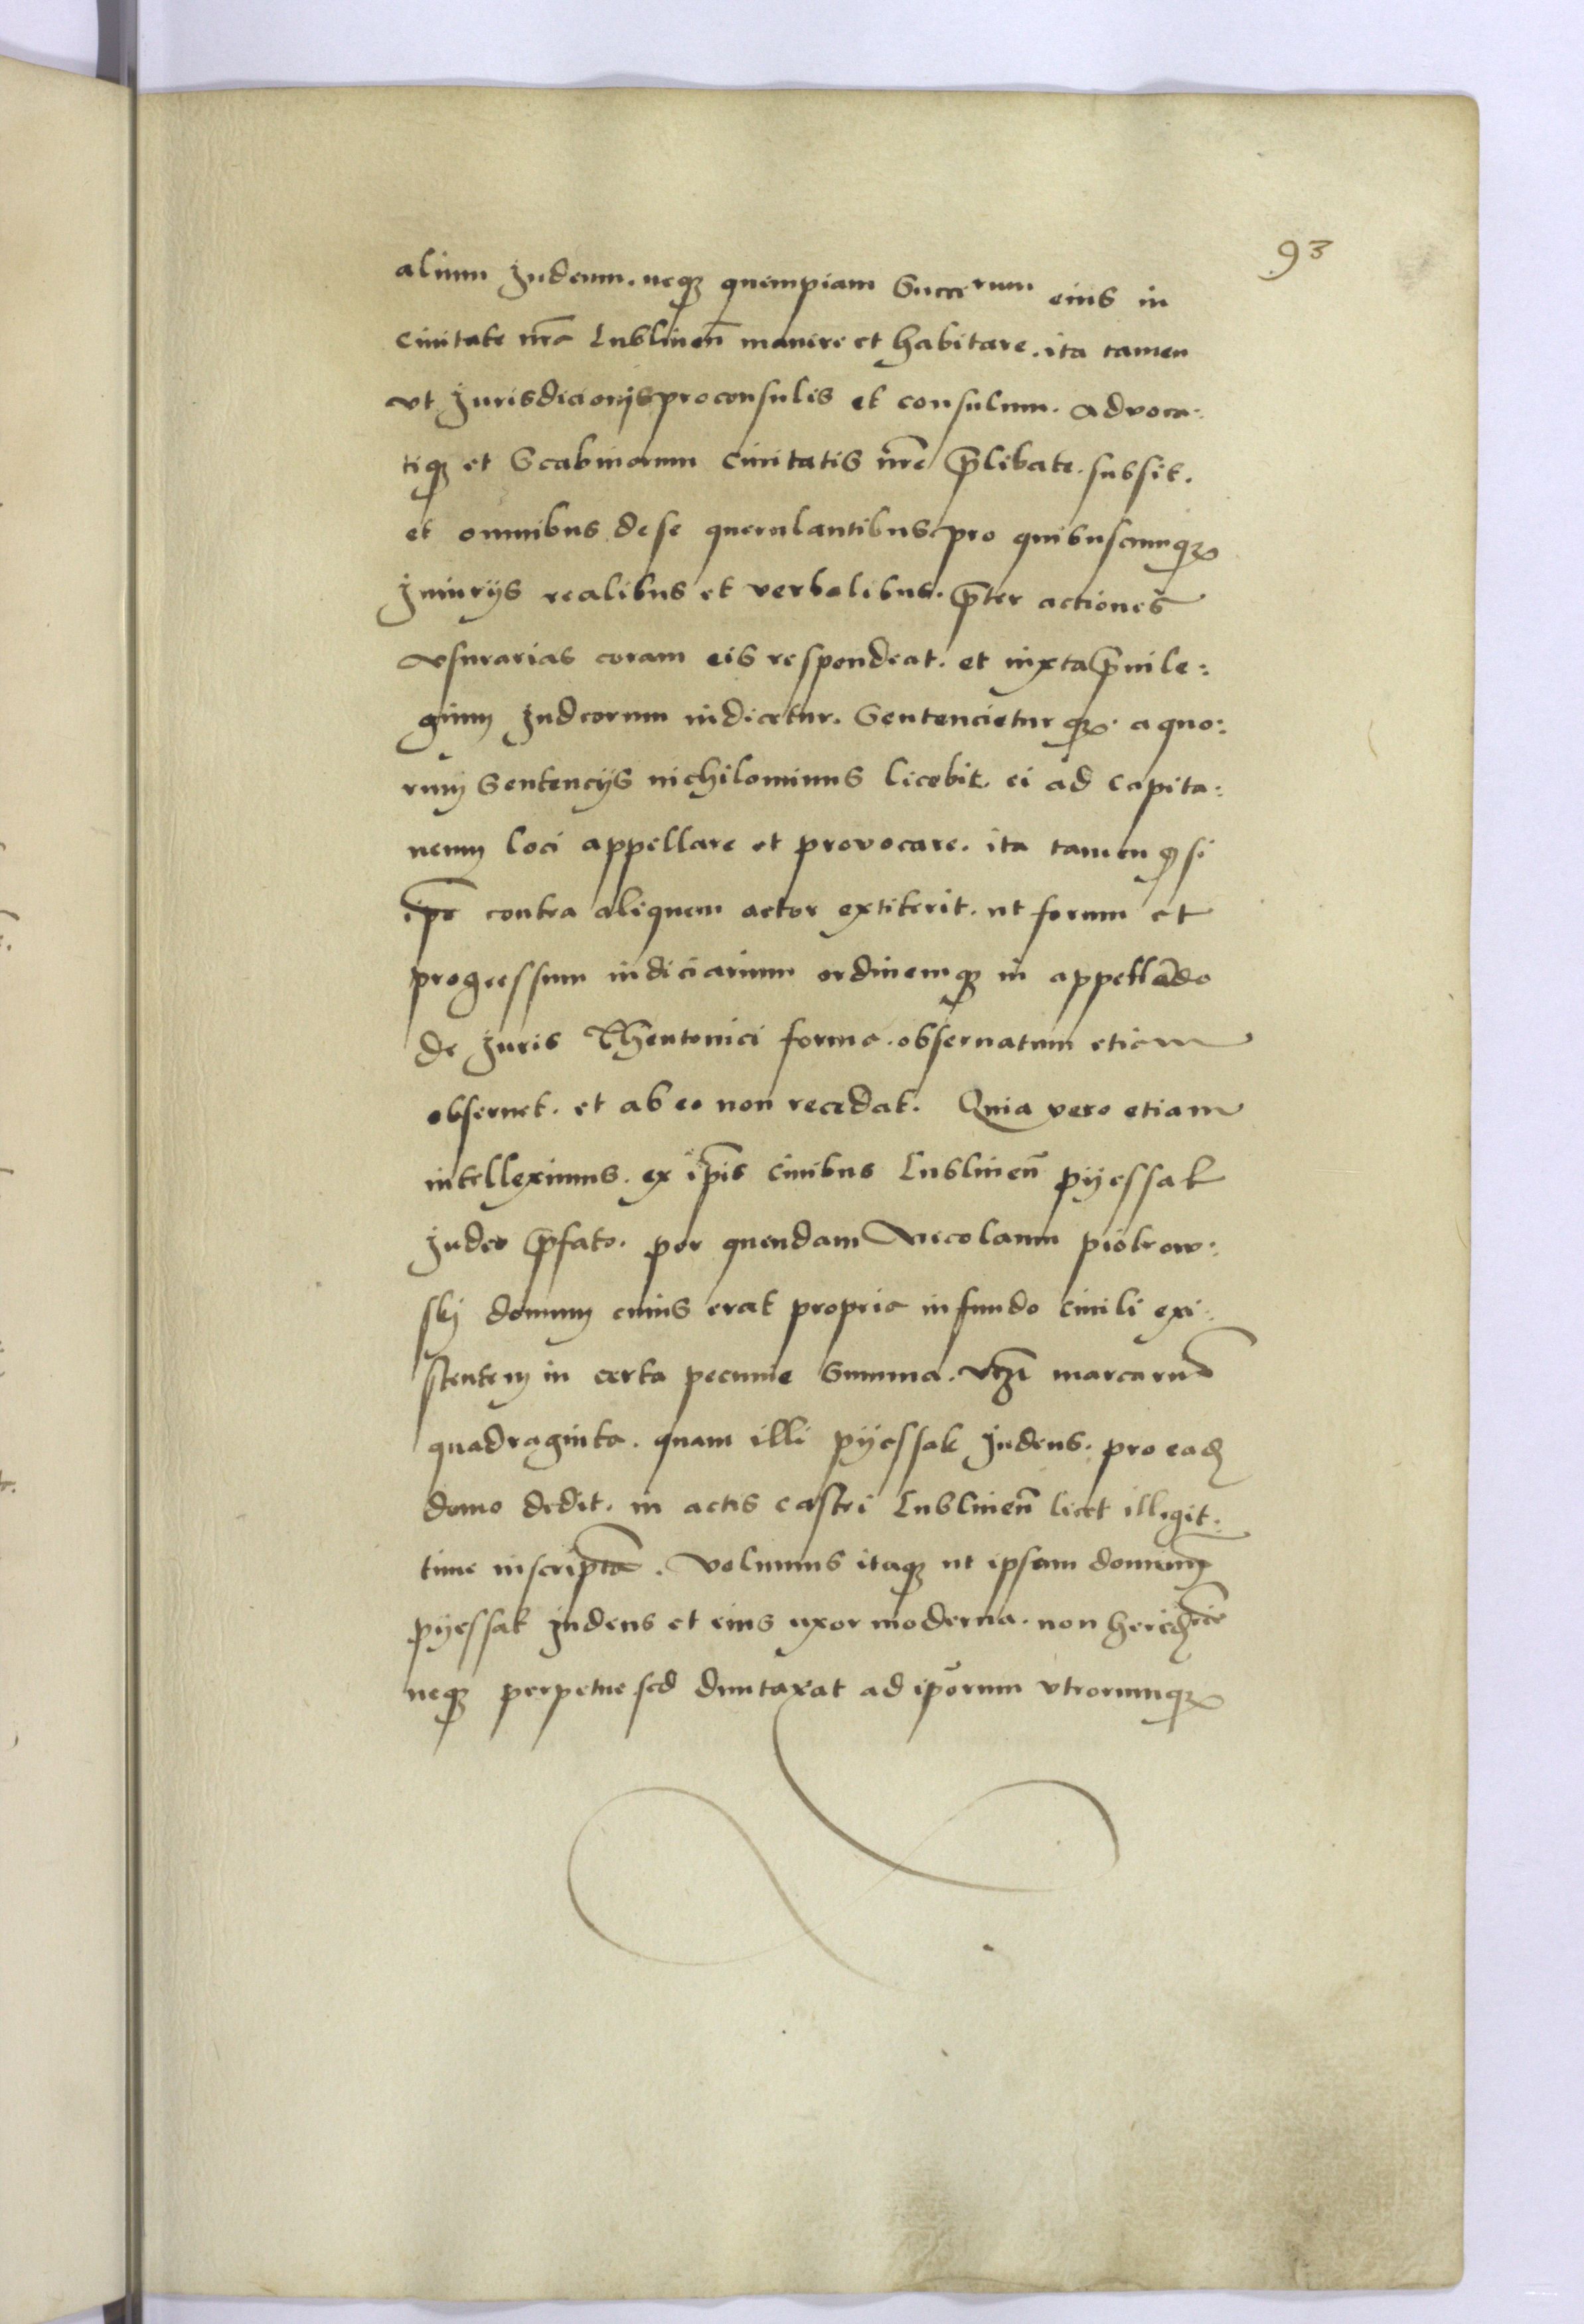 93
alium Judeum. neqꝫ quempiam Succerum eius in
Ciuitate nr̃a Lublineñ manere et habitare. ita tamen
vt Jurisdicionis proconsulis et consulum. Advoca:
tiqꝫ et Scabinorum Ciuitatis nr̃e p̃libate. subsit.
et omnibus de se querulantibus pro quibuscumqꝫ
Jniurijs realibus et verbalibus. p̃ter actiones
vsurarias coram eis respondeat. et iuxta p̃uile:
gium Judeorum iudicetur. Sentencietur qꝫ. a quo:
rum Sentencijs nichilominus licebit ei ad Capita:
neum loci appellare et provocare. ita tamen ꝙ si
ip̃e contra aliquem actor extiterit. ut forum et
progressum iudiciarium ordinemqꝫ in appellãdo
de Juris Theutonici forma. obseruatum etiam
obseruet. et ab eo non recedat. Quia vero etiam
intelleximus. ex ip̃is Ciuibus Lublineñ pyessak
Judeo p̃fato. per quendam Nicolaum piotrow:
skj domum cuius erat propria in fundo Ciuili exi:
stentem in certa pecunie Summa. vtz̃ marcarũ
quadraginta. quam illi pyessak Judeus. pro eadẽ
domo dedit. in actis castri Lublineñ licet illegit:
time inscriptã. Volumus itaqꝫ ut ipsam domum
pyessak Judeus et eius uxor moderna. non heredi͠cie
neqꝫ perpetue sed duntaxat ad ip̃orum vtrorumqꝫ